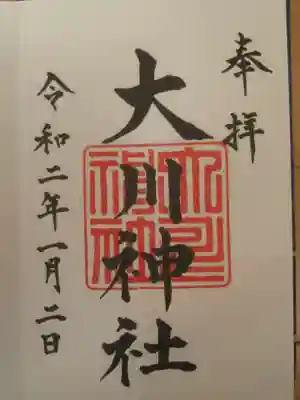 奉拝
大川神社
令和二年一月二日